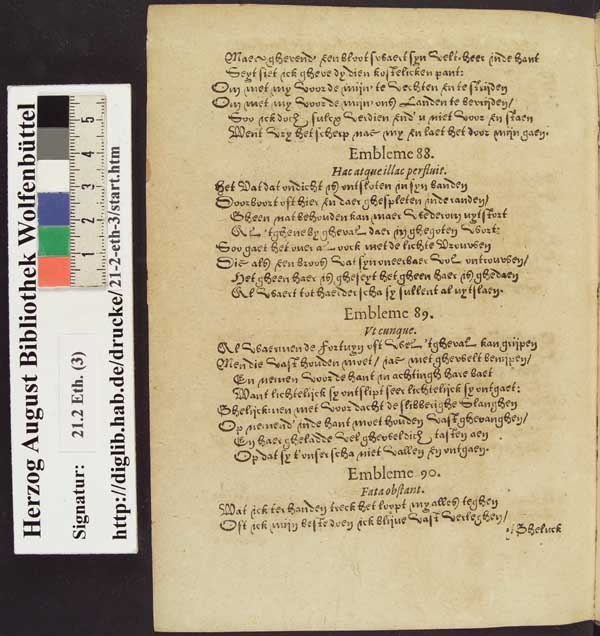 Herzog August Bibliothek Wolfenbüttel
Signatur: 21.2 Eth. (3)
http://diglib.hab.de/drucke/21-2-eth-3/start.htm
1 2 3 4 5
Maer ghevend' een bloot svvaert syn velt-heer inde hant
Seyt siet ick gheve dy dien kostelicken pant:
Om met my voorde mijn' te vechten en te strijden
Om met my voorde mijn' ons Landen te bevrijden/
Soo ick doch sulcx verdien end' u niet voor en staen
Went vry het scherp nae my en laet het door mijn gaen.
Embleme 88.
Hac atque illac perfluit.
Het vat dat ondicht is ontsloten in syn banden
Doorboort oft hier en daer ghespleten inde randen/
Gheen nat behouden kan maer vvederom uytstort
Al 'tghene by gheval daer in ghegoten vvort:
Soo gaet het over al oock met de lichte vrouvven
Die als een broos vat syn oneerbaer vol ontrouvven/
Het gheen haer is gheseyt het gheen haer is ghedaen
Al vvaert tot haerder scha sy sullent al uytslaen.
Embleme 89.
Vt cunque.
Al vvatmen de Fortuyn oft vvel 'tgheval kan grijpen
Men die vast houden moet/ jae met ghevvelt benijpen/
En nemen voorde hant in achtingh hare baet
Want lichtelijck sy ontslipt seer lichtelijck sy ontgaet:
Ghelijckmen met voordacht de slibberighe Slanghen
Op nemend' inde hant moet houden vast ghevanghen/
En haer gheladde vel ghevveldich tasten aen
Op dat sy t'onser scha niet vallen en ontgaen.
Embleme 90.
Fata obstant.
Wat ick ter handen treck het loopt my alles teghen
Oft ick mijn beste doen ick blijve vast verleghen/
Gheluck